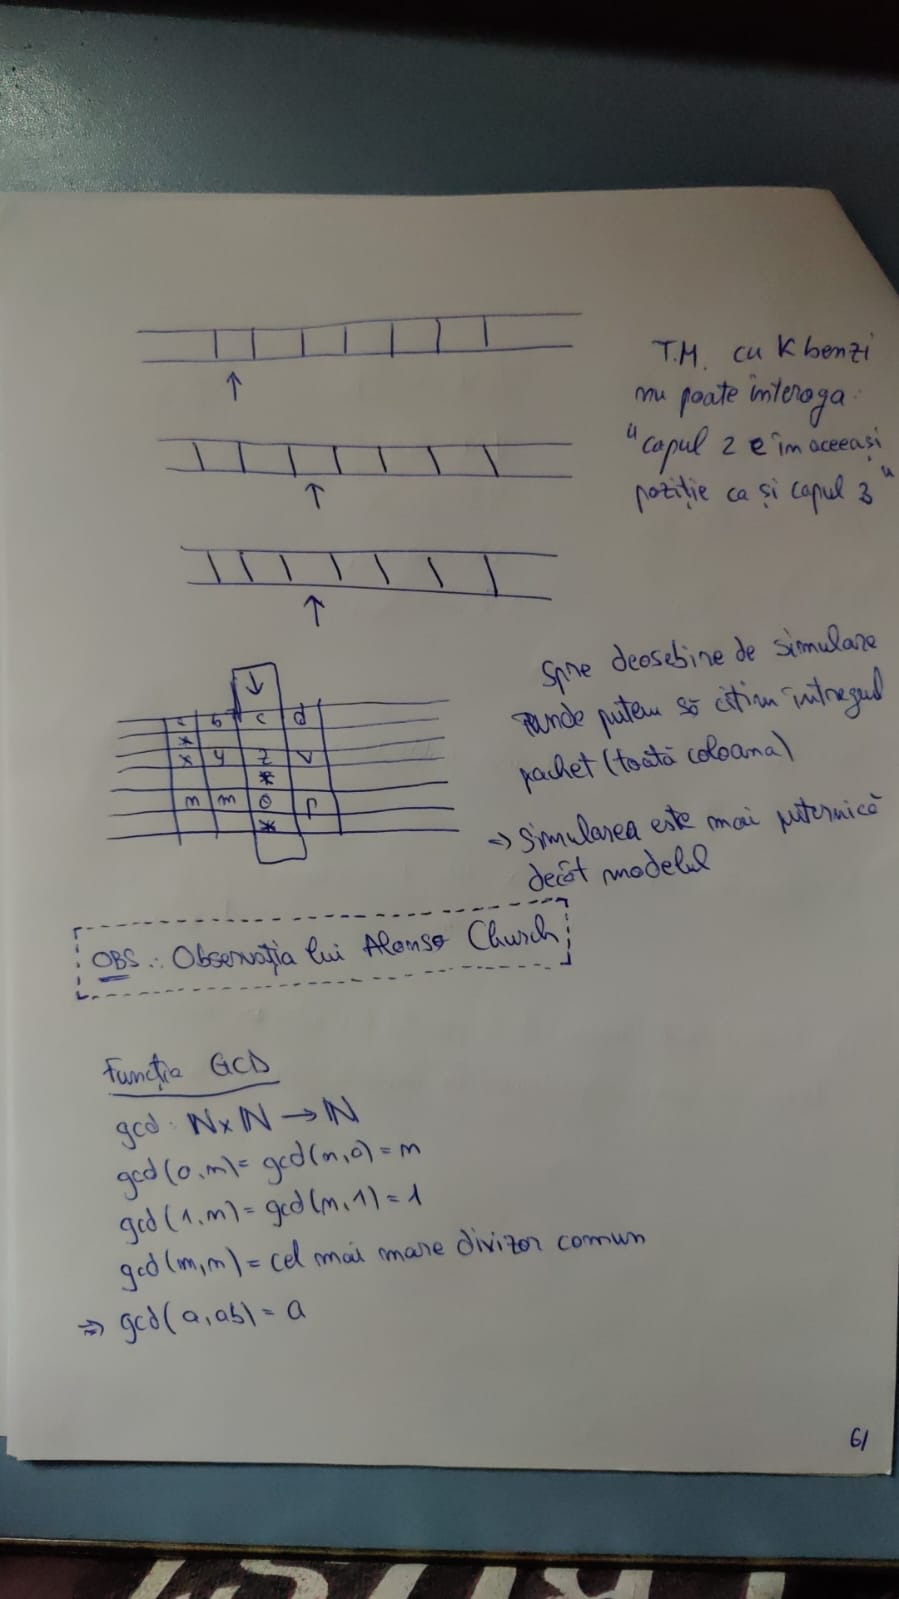 T.M. cu K benzi
nu poate interoga
"capul 2 e în aceeași
poziție ca și capul 3"
Spre deosebire de simulare
unde putem să citim întregul
pachet (toată coloana)
=> Simularea este mai puternică
decât modelul
b c d
*
x y z v
*
m m o p
*
OBS.: Observația lui Alonso Church
Funcția GCD
gcd: ℕ×ℕ → ℕ
gcd(0,m) = gcd(m,0) = m
gcd(1,m) = gcd(m,1) = 1
gcd(m,n) = cel mai mare divizor comun
=> gcd(a,ab) = a
61